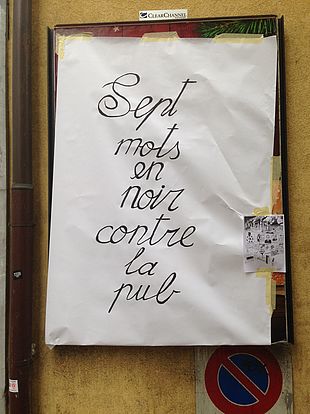 CLEARCHANNEL
Sept
mots
en
noir
contre
la
pub